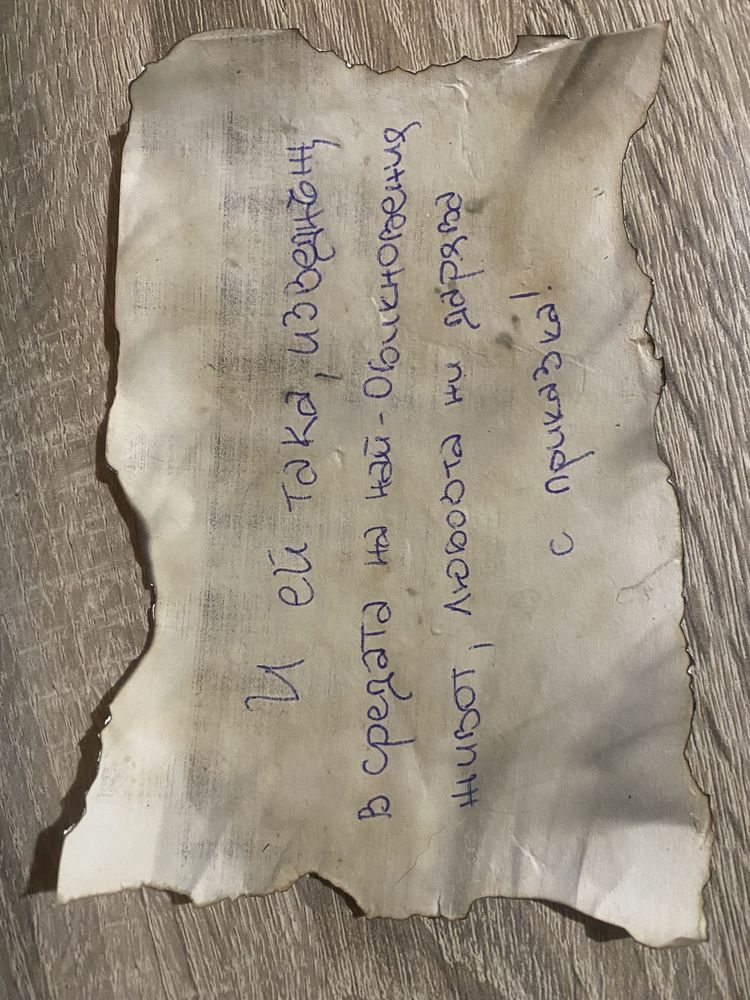 И ей така, изведнъж,
в средата на най-обикновения
живот, любовта ни дарява
с приказка!